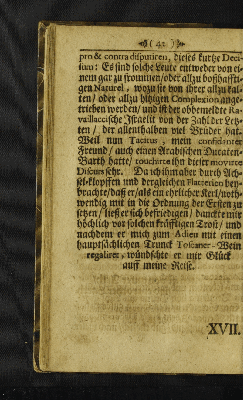 ( 42 )
pro & contra disputiren, dieses kurtze Deci-
sum: Es sind solche Leute entweder von ei-
nem gar zu frommen/ oder allzu boßhafftі-
gen Naturel, wozu sie von ihrer allzu kal-
ten/ oder allzu hitzigen Complexion ange-
trieben werden/ und ist der obbemeldte Ra-
vaillacische Israelit von der Zahl der Letz-
ten/ der allenthalben viel Brüder hat.
Weil nun Tacitus, mein confidenter
Freund/ auch einen Arabischen Ducaten-
Barth hatte/ touchirte ihn dieser moquante
Discurs sehr. Da ich ihm aber durch Ach-
sel-klopffen und dergleichen Flatterien bey-
brachte/ daß er/ als ein ehrlicher Kerl/ noth-
wendig mit in die Ordnung der Ersten zu
setzen/ ließ er sich befriedigen/ danckte mir
höchlich vor solchen kräfftigen Trost/ und
nachdem er mich zum Adieu mit einen
hauptsächlichen Trunck Toscaner-Wein
regaliret, wündschte er mir Glück
auff meine Reise.
XVII.